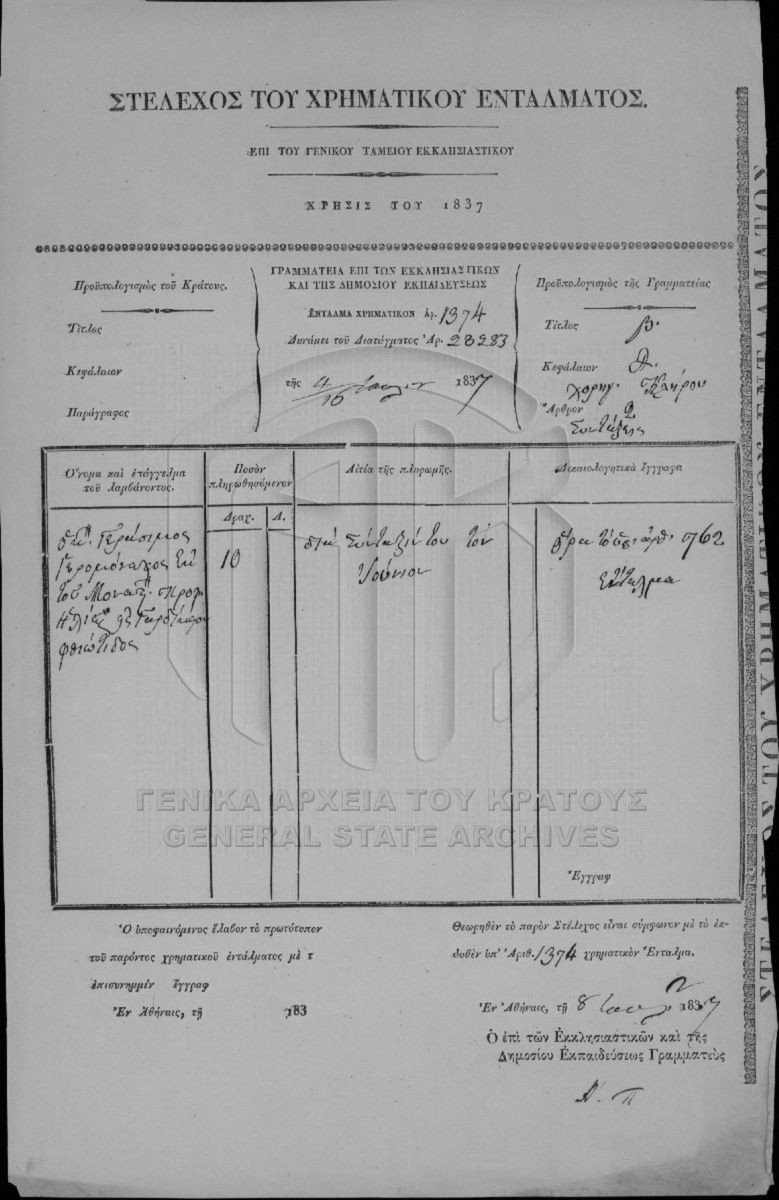 ΣΤΕΛΕΧΟΣ ΤΟΥ ΧΡΗΜΑΤΙΚΟΥ ΕΝΤΑΛΜΑΤΟΣ.
ΕΠΙ ΤΟΥ ΓΕΝΙΚΟΥ ΤΑΜΕΙΟΥ ΕΚΚΛΗΣΙΑΣΤΙΚΟΥ
ΧΡΗΣΙΣ ΤΟΥ 1837
Προϋπολογισμὸς τοῦ Κράτους.
Τίτλος
Κεφάλαιον
Παράγραφος
ΓΡΑΜΜΑΤΕΙΑ ΕΠΙ ΤΩΝ ΕΚΚΛΗΣΙΑΣΤΙΚΩΝ
ΚΑΙ ΤΗΣ ΔΗΜΟΣΙΟΥ ΕΚΠΑΙΔΕΥΣΕΩΣ
ΕΝΤΑΛΜΑ ΧΡΗΜΑΤΙΚΟΝ Ἀρ. 1374
Δυνάμει τοῦ Διατάγματος Ἀρ. 23283
τῆς 4/16 1837
Προϋπολογισμὸς τῆς Γραμματείας
Τίτλος β.
Κεφάλαιον
χορηγ. Κλήρου
Ἄρθρον 2
Συντάξεις
Ὄνομα καὶ ἐπάγγελμα
τοῦ λαμβάνοντος.
Ποσὸν
πληρωθησόμενον
Αἰτία τῆς πληρωμῆς.
Δικαιολογητικὰ ἔγγραφα
Δραχ. Λ.
Γεράσιμος
Ἱερομόναχος ἐκ
τοῦ
φθιώτιδος
10
διὰ Σύνταξίν του τὸν
Ἰούνιον
762
Ἔνταλμα
Ἔγγραφ
ΓΕΝΙΚΑ ΑΡΧΕΙΑ ΤΟΥ ΚΡΑΤΟΥΣ
GENERAL STATE ARCHIVES
Ὁ ὑποφαινόμενος ἔλαβον τὸ πρωτότυπον
τοῦ παρόντος χρηματικοῦ ἐντάλματος μὲ τ
ἐπισυνημμέν ἔγγραφ
Ἐν Ἀθήναις, τῇ 183
Θεωρηθὲν τὸ παρὸν Στέλεχος εἶναι σύμφωνον μὲ τὸ ἐκ-
δοθὲν ὑπ' Ἀριθ. 1374 χρηματικὸν Ἔνταλμα.
Ἐν Ἀθήναις, τῇ 8 1837
Ὁ ἐπὶ τῶν Ἐκκλησιαστικῶν καὶ τῆς
Δημοσίου Ἐκπαιδεύσεως Γραμματεὺς
ΣΤΕΛΕΧΟΣ ΤΟΥ ΧΡΗΜΑΤΙΚΟΥ ΕΝΤΑΛΜΑΤΟΣ